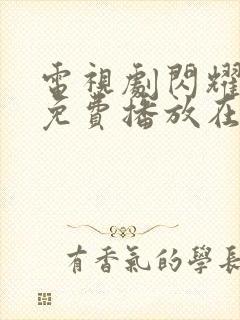 電視劇閃耀
免費播放在
有香氣的學長